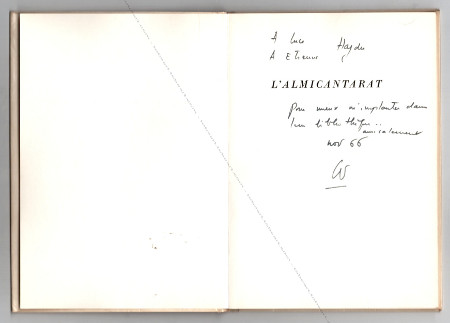 A Luce Hajdu
A Etienne
L'ALMICANTARAT
pour mieux m'implanter dans
leur bibliothèque..
amicalement
nov 66